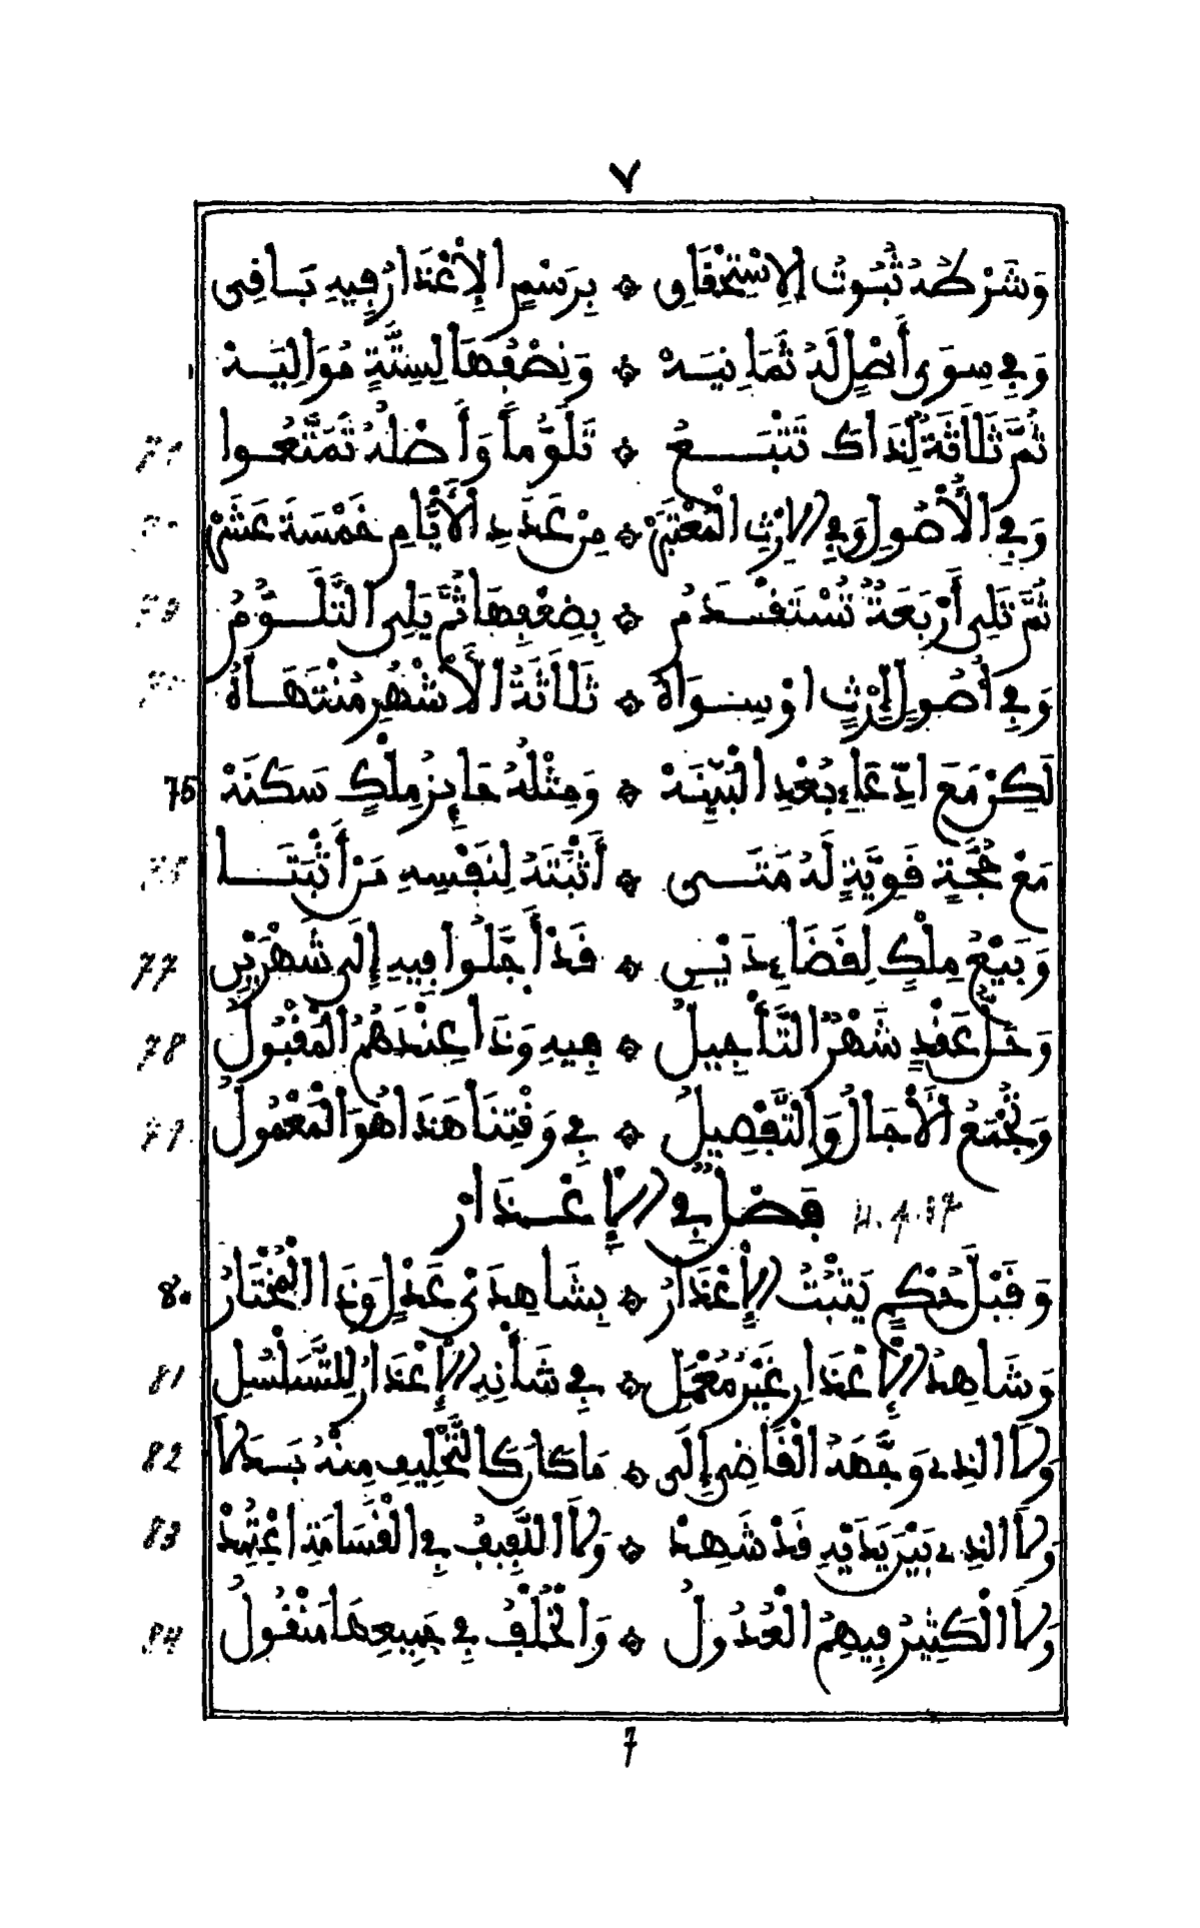 ٧
وَشَرْطُهُ ثُبُوتُ الِاسْتِحْقَاقِ ۞ بِرَسْمٍ الإِعْذَارُ فِيهِ بَاقِي
وَفِي سِوَى أَصْلٍ لَهُ ثَمَانِيَهْ ۞ وَنِصْفُهَا لِسِتَّةٍ مُوَالِيَهْ
ثُمَّ ثَلَاثَةٌ لِذَاكَ تَتْبَعُ ۞ تَلَوُّماً وَأَصْلُهُ تَمَتَّعُوا
وَفِي الْأُصُولِ وَفِي الْإِرْثِ الْمُعْتَبَرْ ۞ مِنْ عَدَدِ الْأَيَّامِ خَمْسَةَ عَشَرْ
ثُمَّ تَلِي أَرْبَعَةٌ تُسْتَقْدَمُ ۞ بِضِعْفِهَا ثُمَّ يَلِي التَّلَوُّمُ
وَفِي أُصُولِ إِرْثٍ اوْ سِوَاهُ ۞ ثَلَاثَةُ الْأَشْهُرِ مُنْتَهَاهُ
لَكِنْ مَعَ ادِّعَاءِ بُعْدِ الْبَيِّنَهْ ۞ وَمِثْلُهُ حَائِزُ مِلْكٍ سَكَنَهْ 75
مَعْ حُجَّةٍ قَوِيَّةٍ لَهُ مَتَى ۞ أَثْبَتَهُ لِنَفْسِهِ مَنْ أَثْبَتَا
وَبَيْعُ مِلْكٍ لِقَضَاءِ دَيْنِ ۞ قَدْ أَجَّلُوا فِيهِ إِلَى شَهْرَيْنِ 77
وَحَلُّ عَقْدٍ شَهْرٌ التَّأْجِيلُ ۞ فِيهِ وَذَا عِنْدَهُمُ الْمَقْبُولُ 78
وَتُجْمَعُ الْأَجَالُ وَالتَّفْصِيلُ ۞ فِي وَقْتِنَا هَذَا هُوَ الْمَعْمُولُ 79
فَصْلٌ فِي الْإِعْذَارْ
وَقَبْلَ حُكْمٍ يَثْبُتُ الْإِعْذَارُ ۞ بِشَاهِدَيْ عَدْلٍ وَذَا الْمُخْتَارُ 80
وَشَاهِدُ الْإِعْذَارِ غَيْرُ مُعْمَلِ ۞ فِي شَأْنِهِ الْإِعْذَارُ لِلتَّسَلْسُلِ 81
وَلَا الذِي وَجَّهَهُ الْقَاضِي إِلَى ۞ مَا كَانَ كَالتَّحْلِيفِ مِنْهُ بَدَلَا 82
وَلَا الذِي بَيْنَ يَدَيْهِ قَدْ شَهِدْ ۞ وَلَا اللَّفِيفُ فِي الْقَسَامَةِ اعْتُمِدْ 83
وَلَا الْكَثِيرُ فِيهِمُ الْعُدُولُ ۞ وَالْخُلْفُ فِي جَمِيعِهَا مَنْقُولُ 84
7